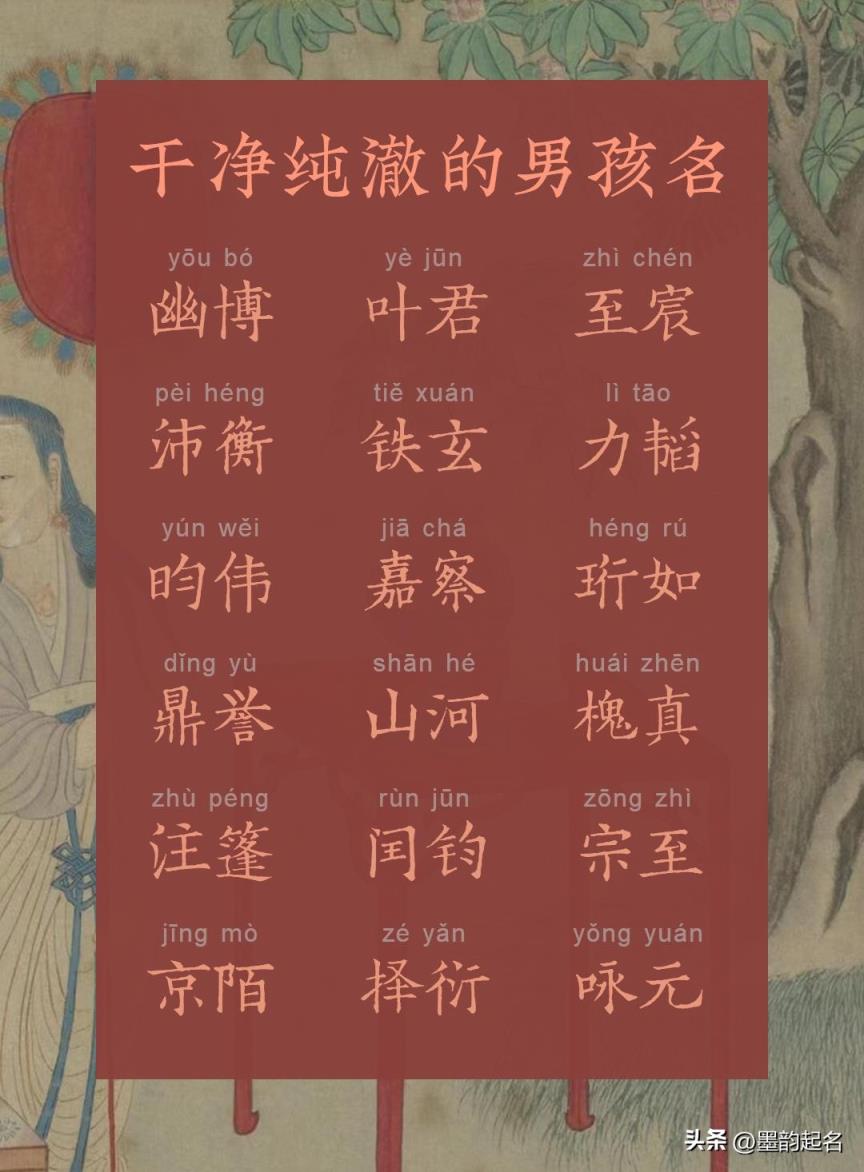 干净纯澈的男孩名
yōu bó yè jūn zhì chén
幽博 叶君 至宸
pèi héng tiě xuán lì tāo
沛衡 铁玄 力韬
yún wěi jiā chá héng rú
昀伟 嘉察 珩如
dǐng yù shān hé huái zhēn
鼎誉 山河 槐真
zhù péng rùn jūn zōng zhì
注篷 闰钧 宗至
jīng mò zé yǎn yǒng yuán
京陌 择衍 咏元
头条 @墨韵起名